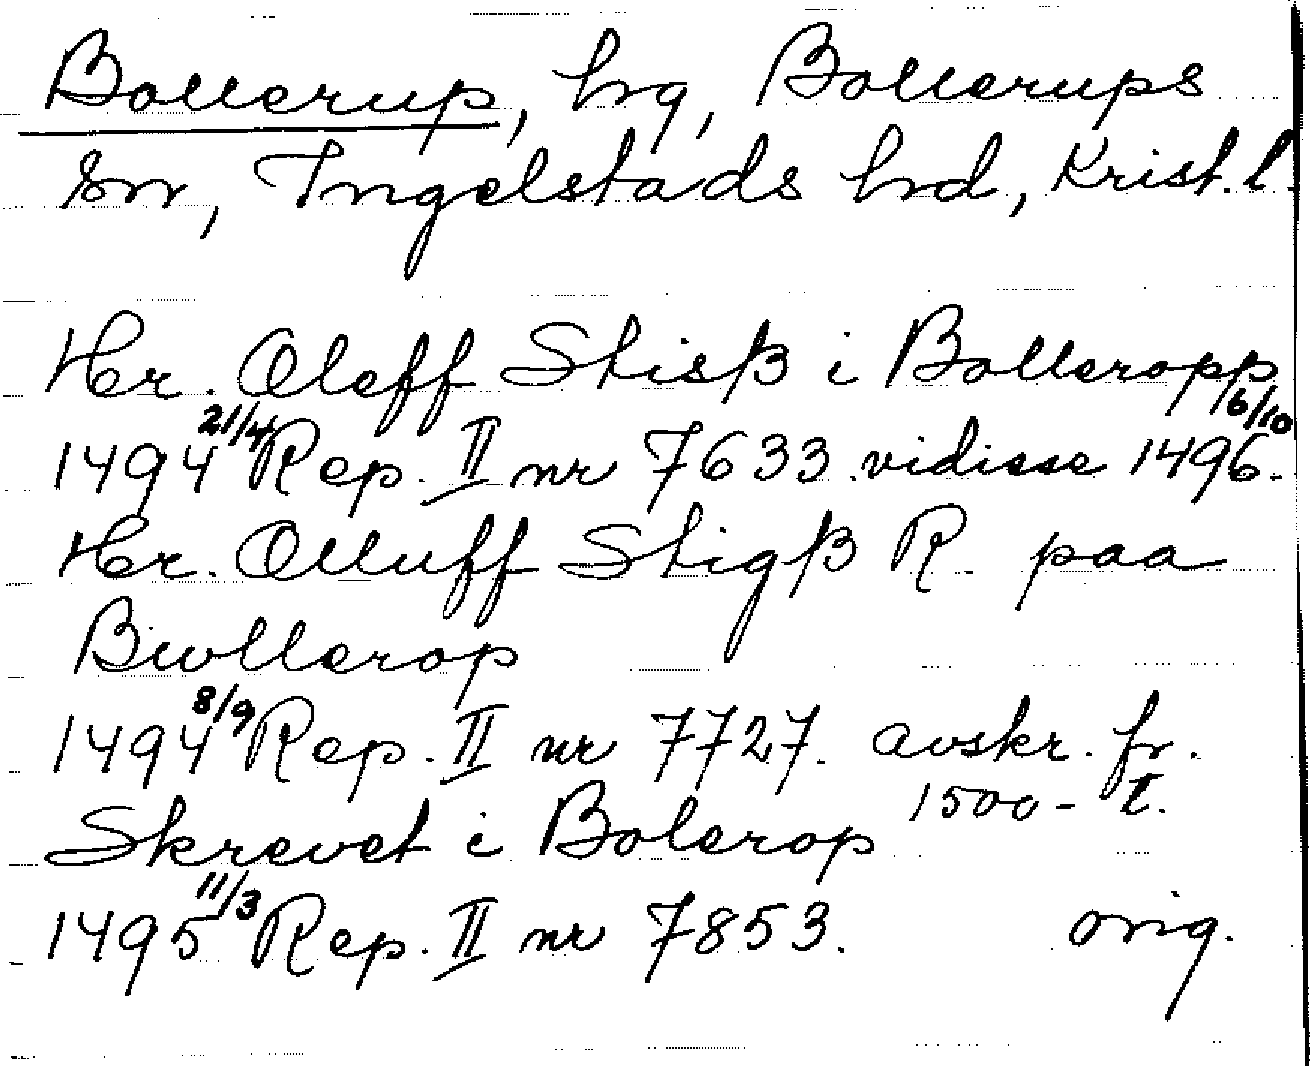 Bollerup, hrg, Bollerups
sn, Ingelstads hrd, Krist. l.
Hr. Oleff Stisß i Bolleropp
1494 21/4 Rep. II nr 7633. vidisse 1496 6/10.
Hr. Olluff Stigß R. paa
Bwllerop
1494 8/9 Rep. II nr 7727. avskr. fr.
1500- t.
Skrevet i Bolerop
1495 11/3 Rep. II nr 7853. orig.